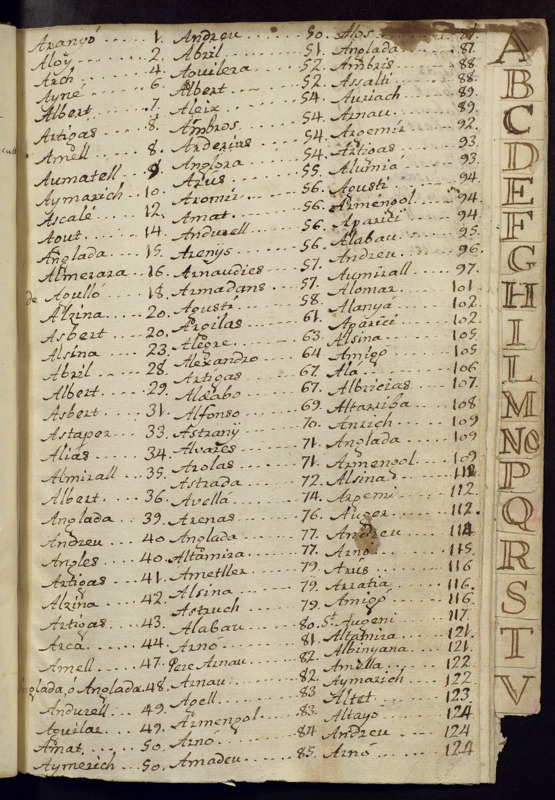 Aranyó 1.
Aloy 2.
Arch 4.
Ayne 6.
Albert 7.
Artigas 8.
Amell 8.
Aumatell 9.
Aymarich 10.
Ascalé 12.
Aout 14.
Anglada 15.
Almerara 16.
de Agulló 18.
Alzina 20.
Asbert 20.
Alsina 23.
Abril 28.
Albert 29.
Asbert 31.
Astaper 33.
Alias 34.
Almirall 35.
Albert 36.
Anglada 39.
Andreu 40
Angles 40.
Artigas 41.
Alzina 42.
Artigas 43.
Arca 44.
Amell 47.
Anglada, ó Anglada. 48.
Andurell 49.
Aguilar 49.
Amat 50.
Aymerich 50.
Andreu 50.
Abril 51.
Aguilera 52.
Albert 52.
Aleix 54.
Ambros 54.
Arderius 54.
Anglora 54.
Arus 55.
Aromir 56.
Amat 56.
Andurell 56.
Arenys 56.
Arnaudies 57.
Armadans 57.
Agusti 58.
Argilas 61.
Alegre 63.
Alexandro 64
Artigas 67.
Aldabo 67.
Alfonso 69.
Astrany 70.
Alvares 71.
Arolas 71.
Astrada 72.
Avellá 74.
Arenas 76.
Anglada 77.
Altamira 77.
Ametller 79.
Alsina 79.
Astruch 79.
Alabau 80.
Arno 81.
Pere Arnau 82.
Arnau 82.
Agell 83
Armengol 83.
Arnó 84
Amadeu 85.
Alos 87.
Anglada 87.
Ambris 88
Assalti 88
Auriach 89.
Arnau 89.
Argemir 92.
Artigas 93.
Alumia 93.
Agusti 94.
Armengol 94.
Aparici 94
Alabau 95.
Andreu 96.
Aumirall 97.
Alomar 101
Alanyá 102
Aparici 102.
Alsina 105
Amigó 105
Alá 106
Albricias 107.
Altarriba 108
Anrich 109
Anglada 109
Armengol 109
Alsina 112
Argemi 112
Auger 112.
Andreu 114
Arnó 115.
Arus 116
Arratia 116.
Amigó 116.
St. Augeni 117.
Altamira 121.
Albinyana 121.
Amella 122
Aymarich 122.
Altet 123.
Altayo 124
Andreu 124
Arnó 124
A
B
C
D
E
F
G
H
I
L
M
N O
P
Q
R
S
T
V